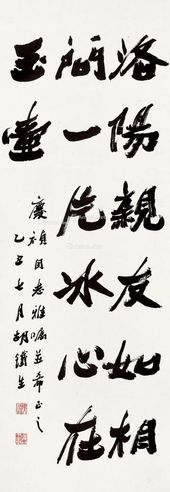 洛陽親友如相
問一片冰心在
玉壺
慶禎同志雅囑並希正之
乙丑七月胡鐵生